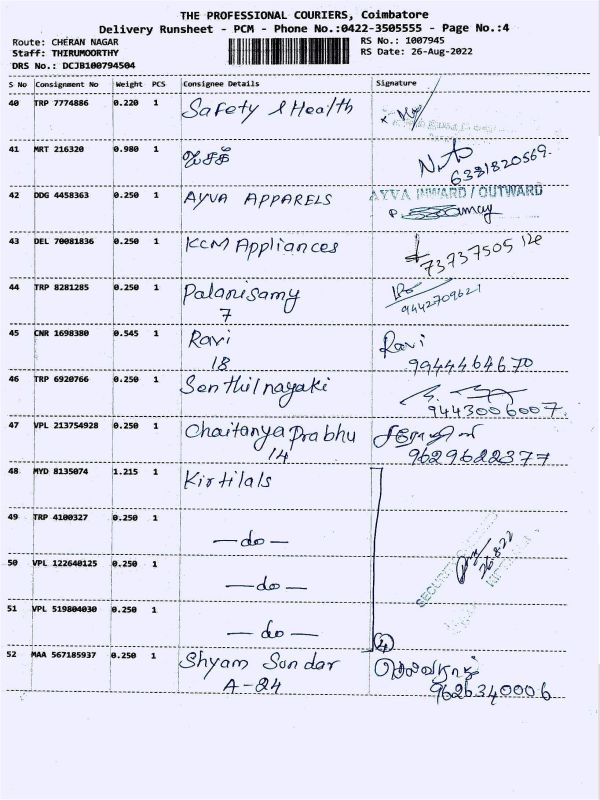 THE PROFESSIONAL COURIERS, Coimbatore
Delivery Runsheet - PCM - Phone No.:0422-3505555 - Page No.:4
Route: CHERAN NAGAR
Staff: THIRUMOORTHY
DRS No.: DCJB100794504
RS No.: 1007945
RS Date: 26-Aug-2022
S No Consignment No Weight PCS Consignee Details Signature
40 TRP 7774886 0.220 1 Safety & Health
41 MRT 216320 0.980 1
6331820569.
42 DDG 4458363 0.250 1 AYVA APPARELS AYVA INWARD / OUTWARD
43 DEL 70081836 0.250 1 KCM Appliances
44 TRP 8281285 0.250 1 Palanisamy
7 9442709621
45 CNR 1698380 0.545 1 Ravi Ravi
18 9944464670
46 TRP 6920766 0.250 1 Senthilnayaki
9443006007.
47 VPL 213754928 0.250 1 Chaitanya Prabhu
14 9629622377
48 MYD 8135074 1.215 1 Kirtilals
49 TRP 4100327 0.250 1
— do —
50 VPL 122640125 0.250 1
— do — 26.8.22
51 VPL 519804030 0.250 1
— do — 4
52 MAA 567185937 0.250 1 Shyam Sundar
A-24 9626340006